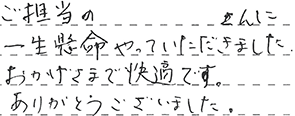 ご担当の さんに
一生懸命やっていただきました.
おかげさまで快適です。
ありがとうございました。